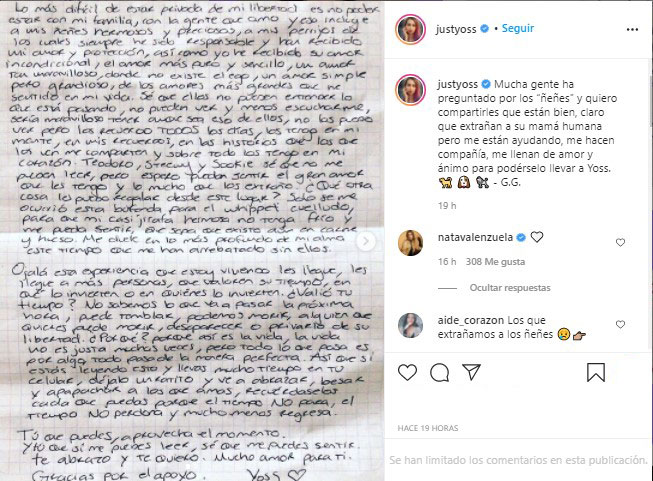 Lo más difícil de estar privada de mi libertad es no poder
estar con mi familia, con la gente que amo y eso incluye
a mis ñeñes hermosos y preciosos, a mis perrijos de
los cuales siempre he sido responsable y han recibido
mi amor y protección, así como yo he recibido su amor
incondicional, el amor más puro y sencillo, un amor
tan maravilloso, donde no existe el ego, un amor simple
pero grandioso, de los amores más grandes que he
sentido en mi vida. Sé que ellos no pueden entender lo
que está pasando, no pueden ver y menos escucharme,
sería maravilloso tener aunque sea eso de ellos, no los puedo
ver pero los recuerdo TODOS los días, los tengo en mi
mente, en mis recuerdos, en las historias que los que
los ven me comparten y sobre todo los tengo en mi
corazón. Teodoro, Steewy y Sookie sé que no me
pueden leer, pero espero puedan sentir el gran amor
que les tengo y lo mucho que los extraño. ¿Qué otra
cosa les puedo regalar desde este lugar? Solo se me
ocurrió esta bufanda para el whippet cuelludo,
para que mi casi jirafa hermosa no tenga frío y
me pueda sentir, que sepa que existo aún en carne
y hueso. Me duele en lo más profundo de mi alma
este tiempo que me han arrebatado sin ellos.
Ojalá esta experiencia que estoy viviendo les llegue, les
llegue a más personas, que valoren su tiempo, en
qué lo invierten o en quiénes lo invierten. ¿Valió tu
tiempo? No sabemos lo que va a pasar la próxima
hora, puede temblar, podemos morir, alguien que
quieres puede morir, desaparecer o privarte de su
libertad. ¿Por qué? Porque así es la vida, la vida
no es justa muchas veces, pero todo lo que pasa es
por algo, todo pasa de la manera perfecta. Así que si
estás leyendo esto y llevas mucho tiempo en tu
celular, déjalo un ratito y ve a abrazar, besar
y apapachar a los que amas, recuérdaselos
cada que puedas porque el tiempo NO para, el
tiempo NO perdona y mucho menos regresa.
Tú que puedes, aprovecha el momento
Y tú que sí me puedes leer, sé que me puedes sentir.
te abrazo y te quiero. Mucho amor para ti.
Gracias por el apoyo. Yoss
justyoss • Seguir
justyoss Mucha gente ha
preguntado por los "ñeñes" y quiero
compartirles que están bien, claro
que extrañan a su mamá humana
pero me están ayudando, me hacen
compañía, me llenan de amor y
ánimo para podérselo llevar a Yoss.
🐕 🐶 🐩 - G.G.
19 h
natavalenzuela 🤍
16 h 308 Me gusta
Ocultar respuestas
aide_corazon Los que
extrañamos a los ñeñes 😢👉🏼
HACE 19 HORAS
Se han limitado los comentarios en esta publicación.